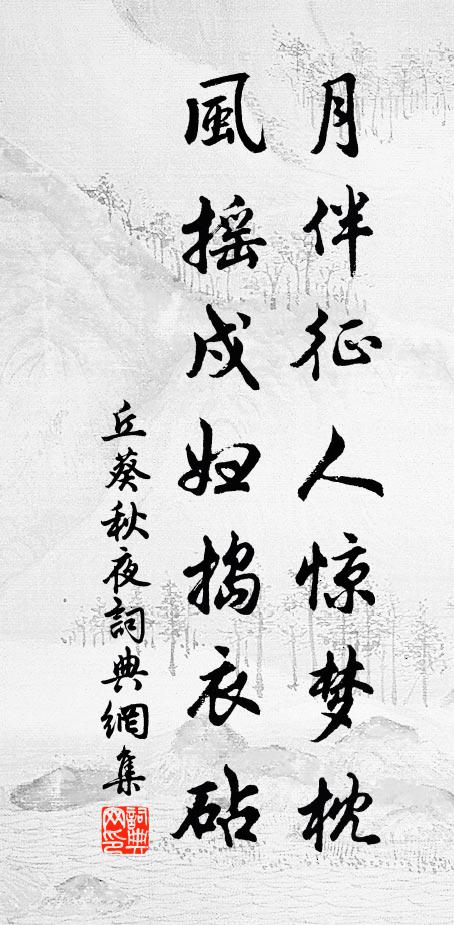 月伴征人惊梦枕
風摇戍妇捣衣砧
丘葵秋夜詞典網集
詞典網印